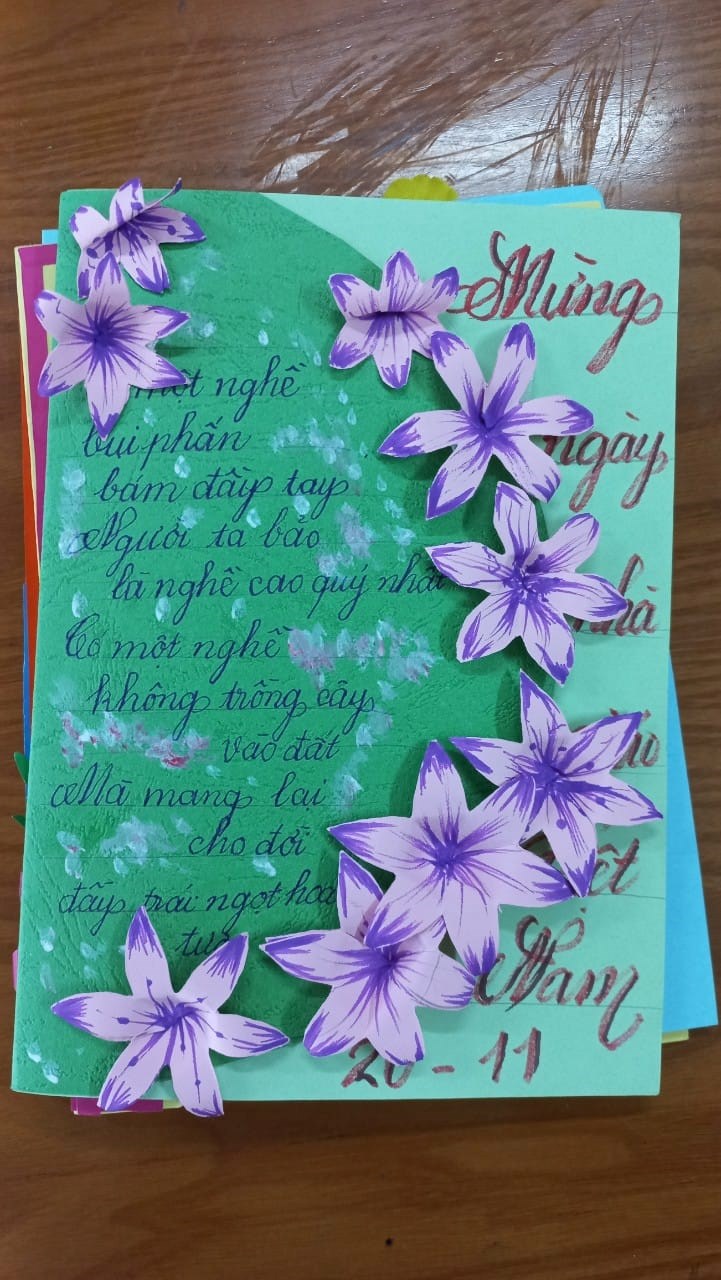 một nghề
bụi phấn
bám đầy tay
Người ta bảo
là nghề cao quý nhất
Có một nghề
không trồng cây
vào đất
Mà mang lại
cho đời
đầy trái ngọt hoa
Mừng
ngày
nhà
Nam
20-11